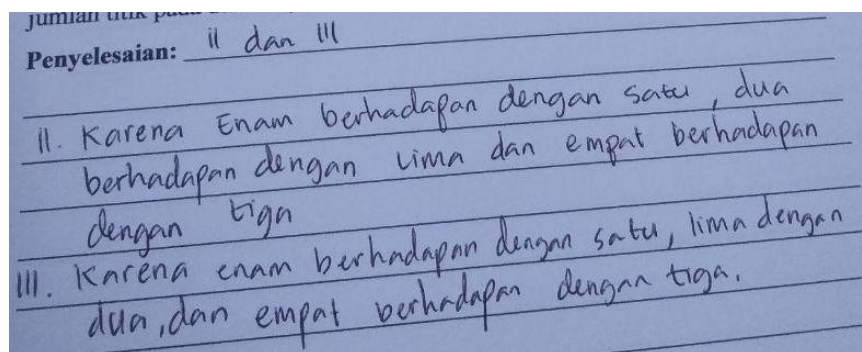 jumlah titik
Penyelesaian: ii dan iii
ii. Karena Enam berhadapan dengan satu, dua
berhadapan dengan Lima dan empat berhadapan
dengan tiga
iii. Karena enam berhadapan dengan satu, lima dengan
dua, dan empat berhadapan dengan tiga.